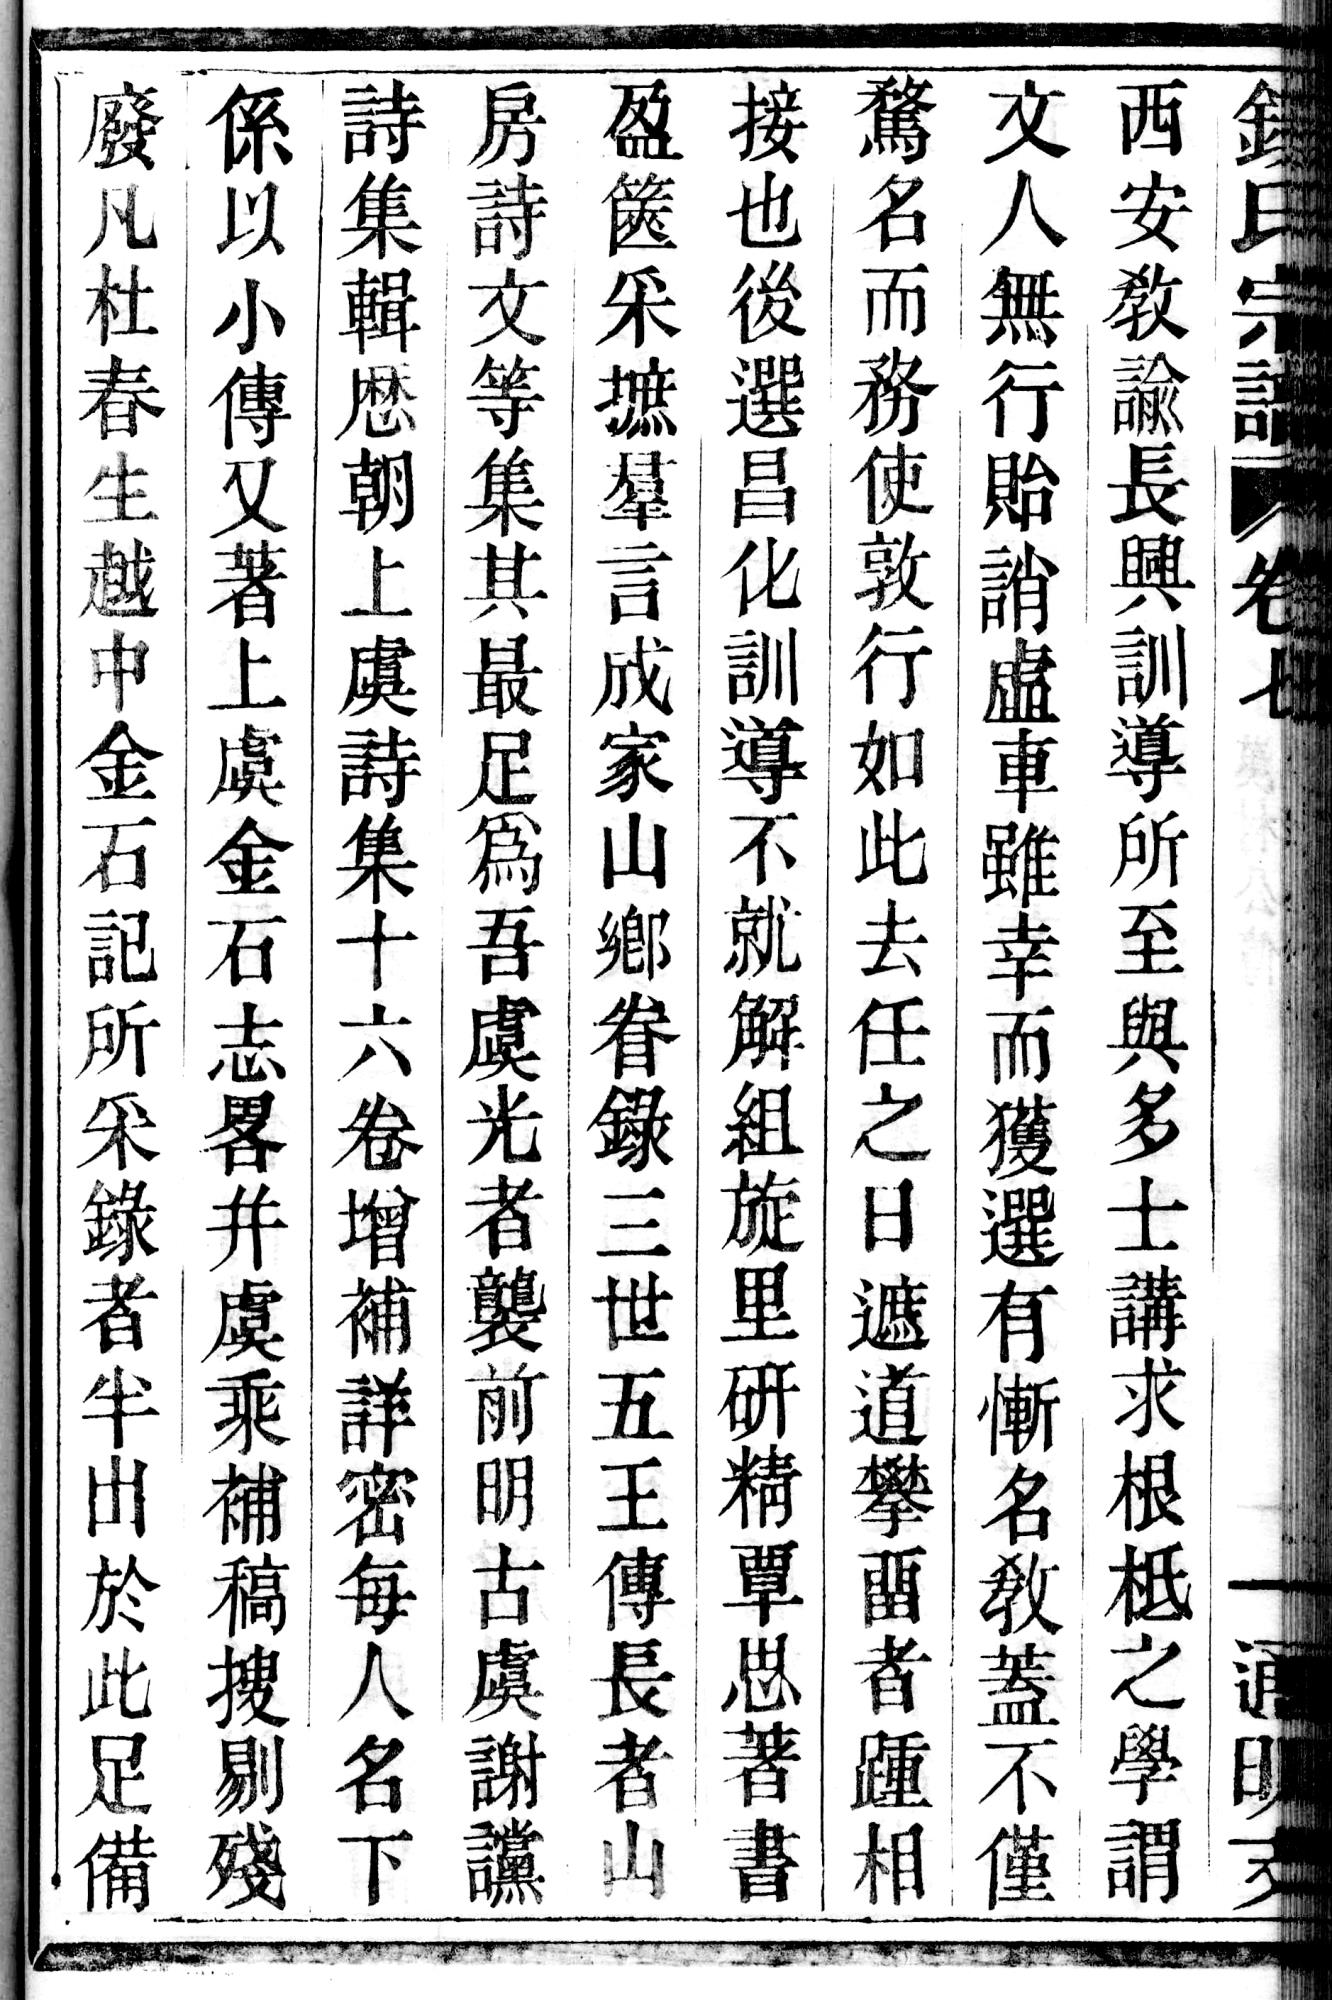 錢氏宗譜 卷七 一 通明支
西安敎諭長興訓導所至與多士講求根柢之學謂
文人無行貽誚盧車雖幸而獲選有慚名敎蓋不僅
騖名而務使敦行如此去任之日遮道攀畱者踵相
接也後選昌化訓導不就解組旋里研精覃思著書
盈篋采摭羣言成家山鄉眷錄三世五王傳長者山
房詩文等集其最足爲吾虞光者襲前明古虞謝讜
詩集輯歷朝上虞詩集十六卷增補詳密每人名下
係以小傳又著上虞金石志畧幷虞乘補稿搜剔殘
廢凡杜春生越中金石記所采錄者半出於此足備